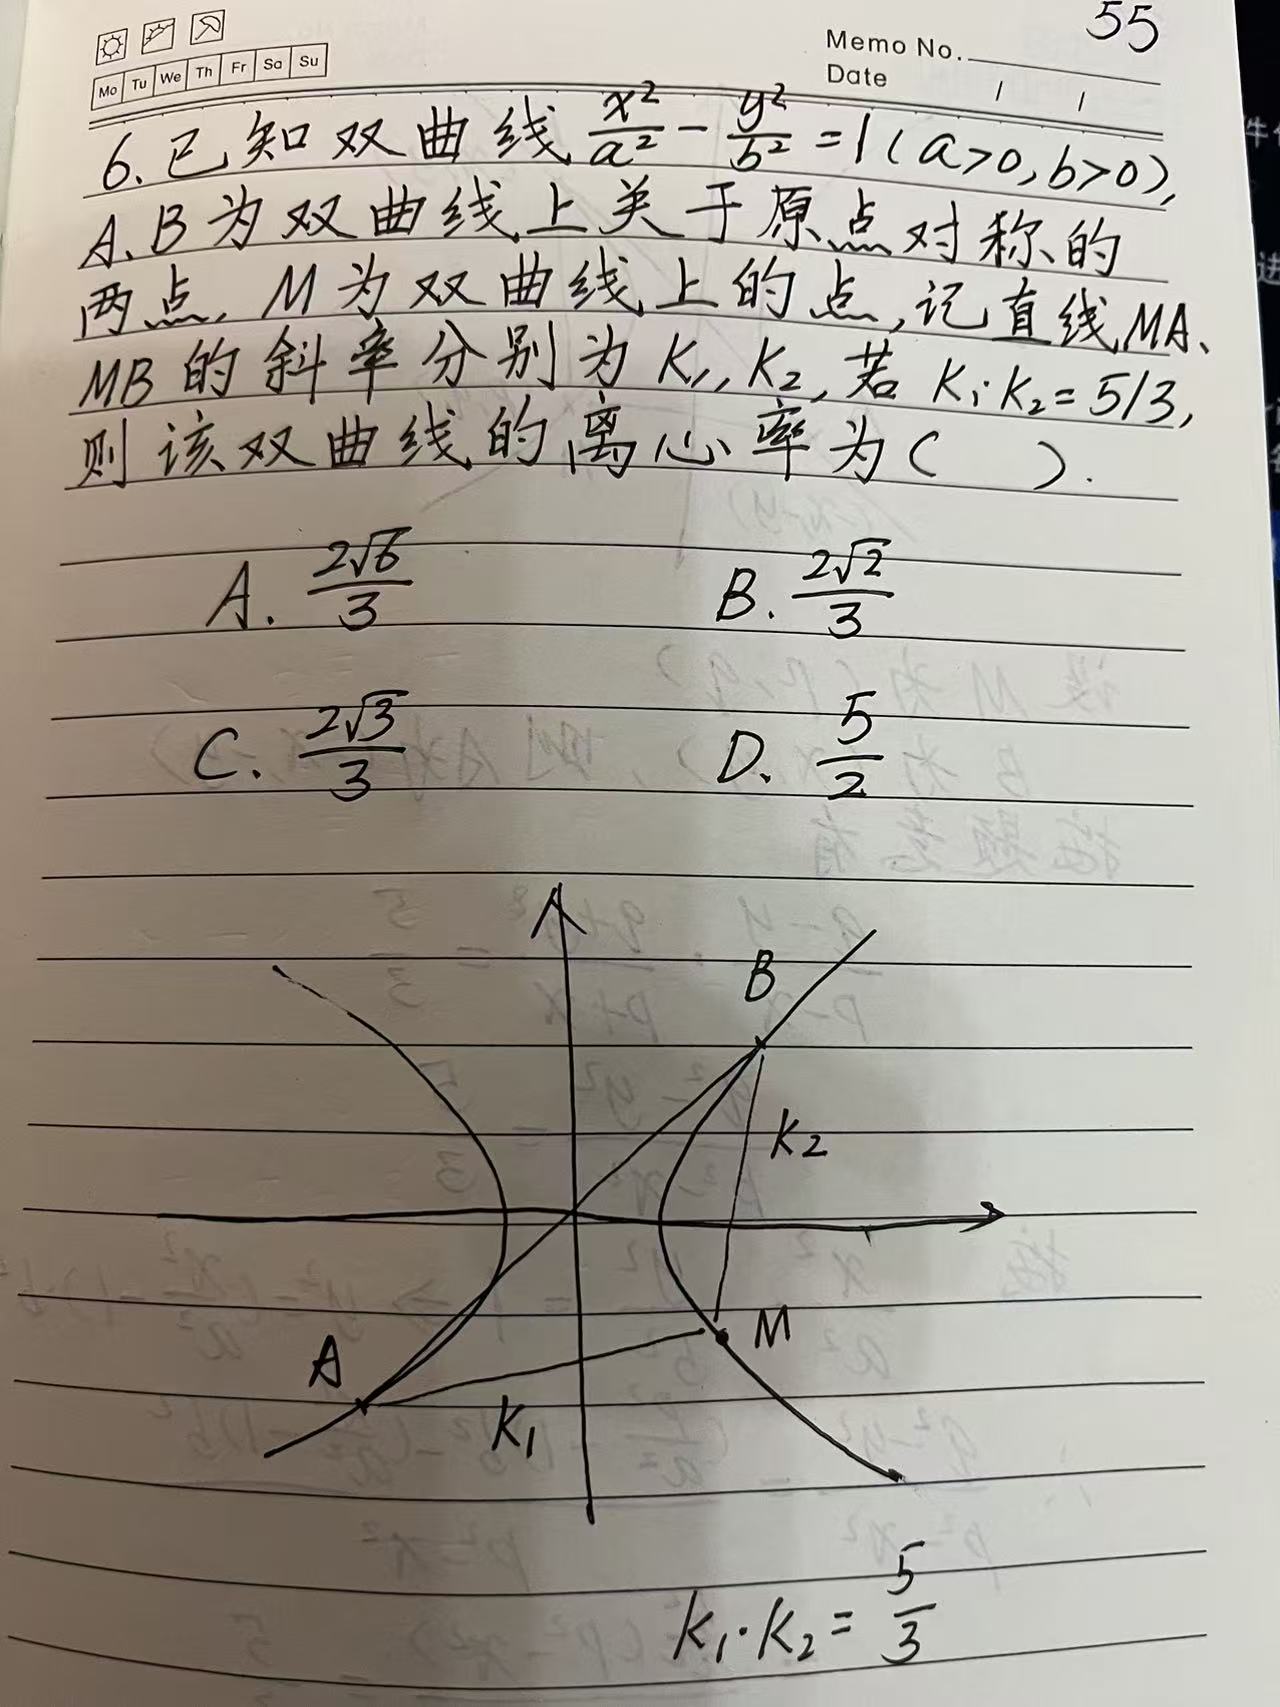 55
Memo No.
Mo Tu We Th Fr Sa Su
Date / /
6. 已知双曲线 x²/a² - y²/b² = 1 (a>0, b>0),
A、B为双曲线上关于原点对称的
两点, M为双曲线上的点, 记直线MA、
MB的斜率分别为K₁, K₂, 若 K₁·K₂=5/3,
则该双曲线的离心率为( ).
A. 2√6/3 B. 2√2/3
C. 2√3/3 D. 5/2
B
K2
M
A
K1
K₁·K₂ = 5/3